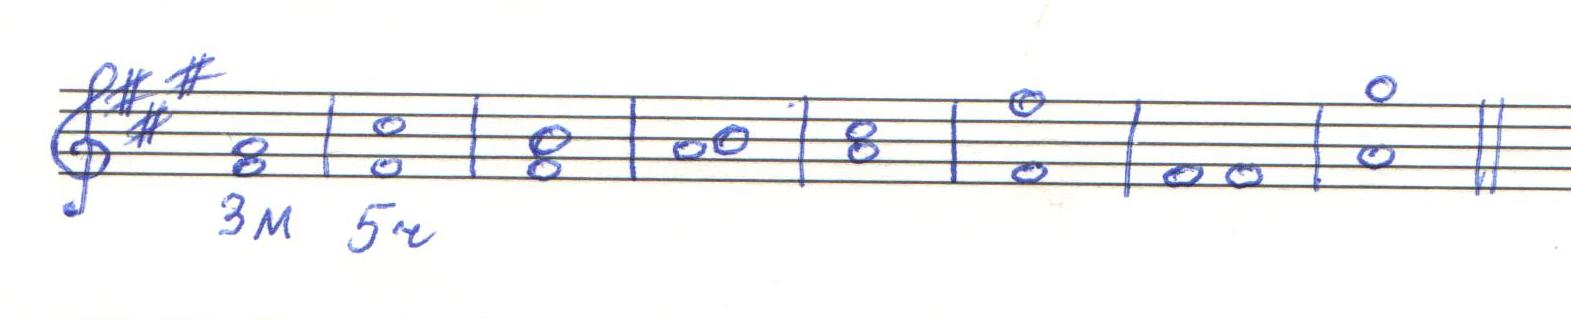 3м 5ч